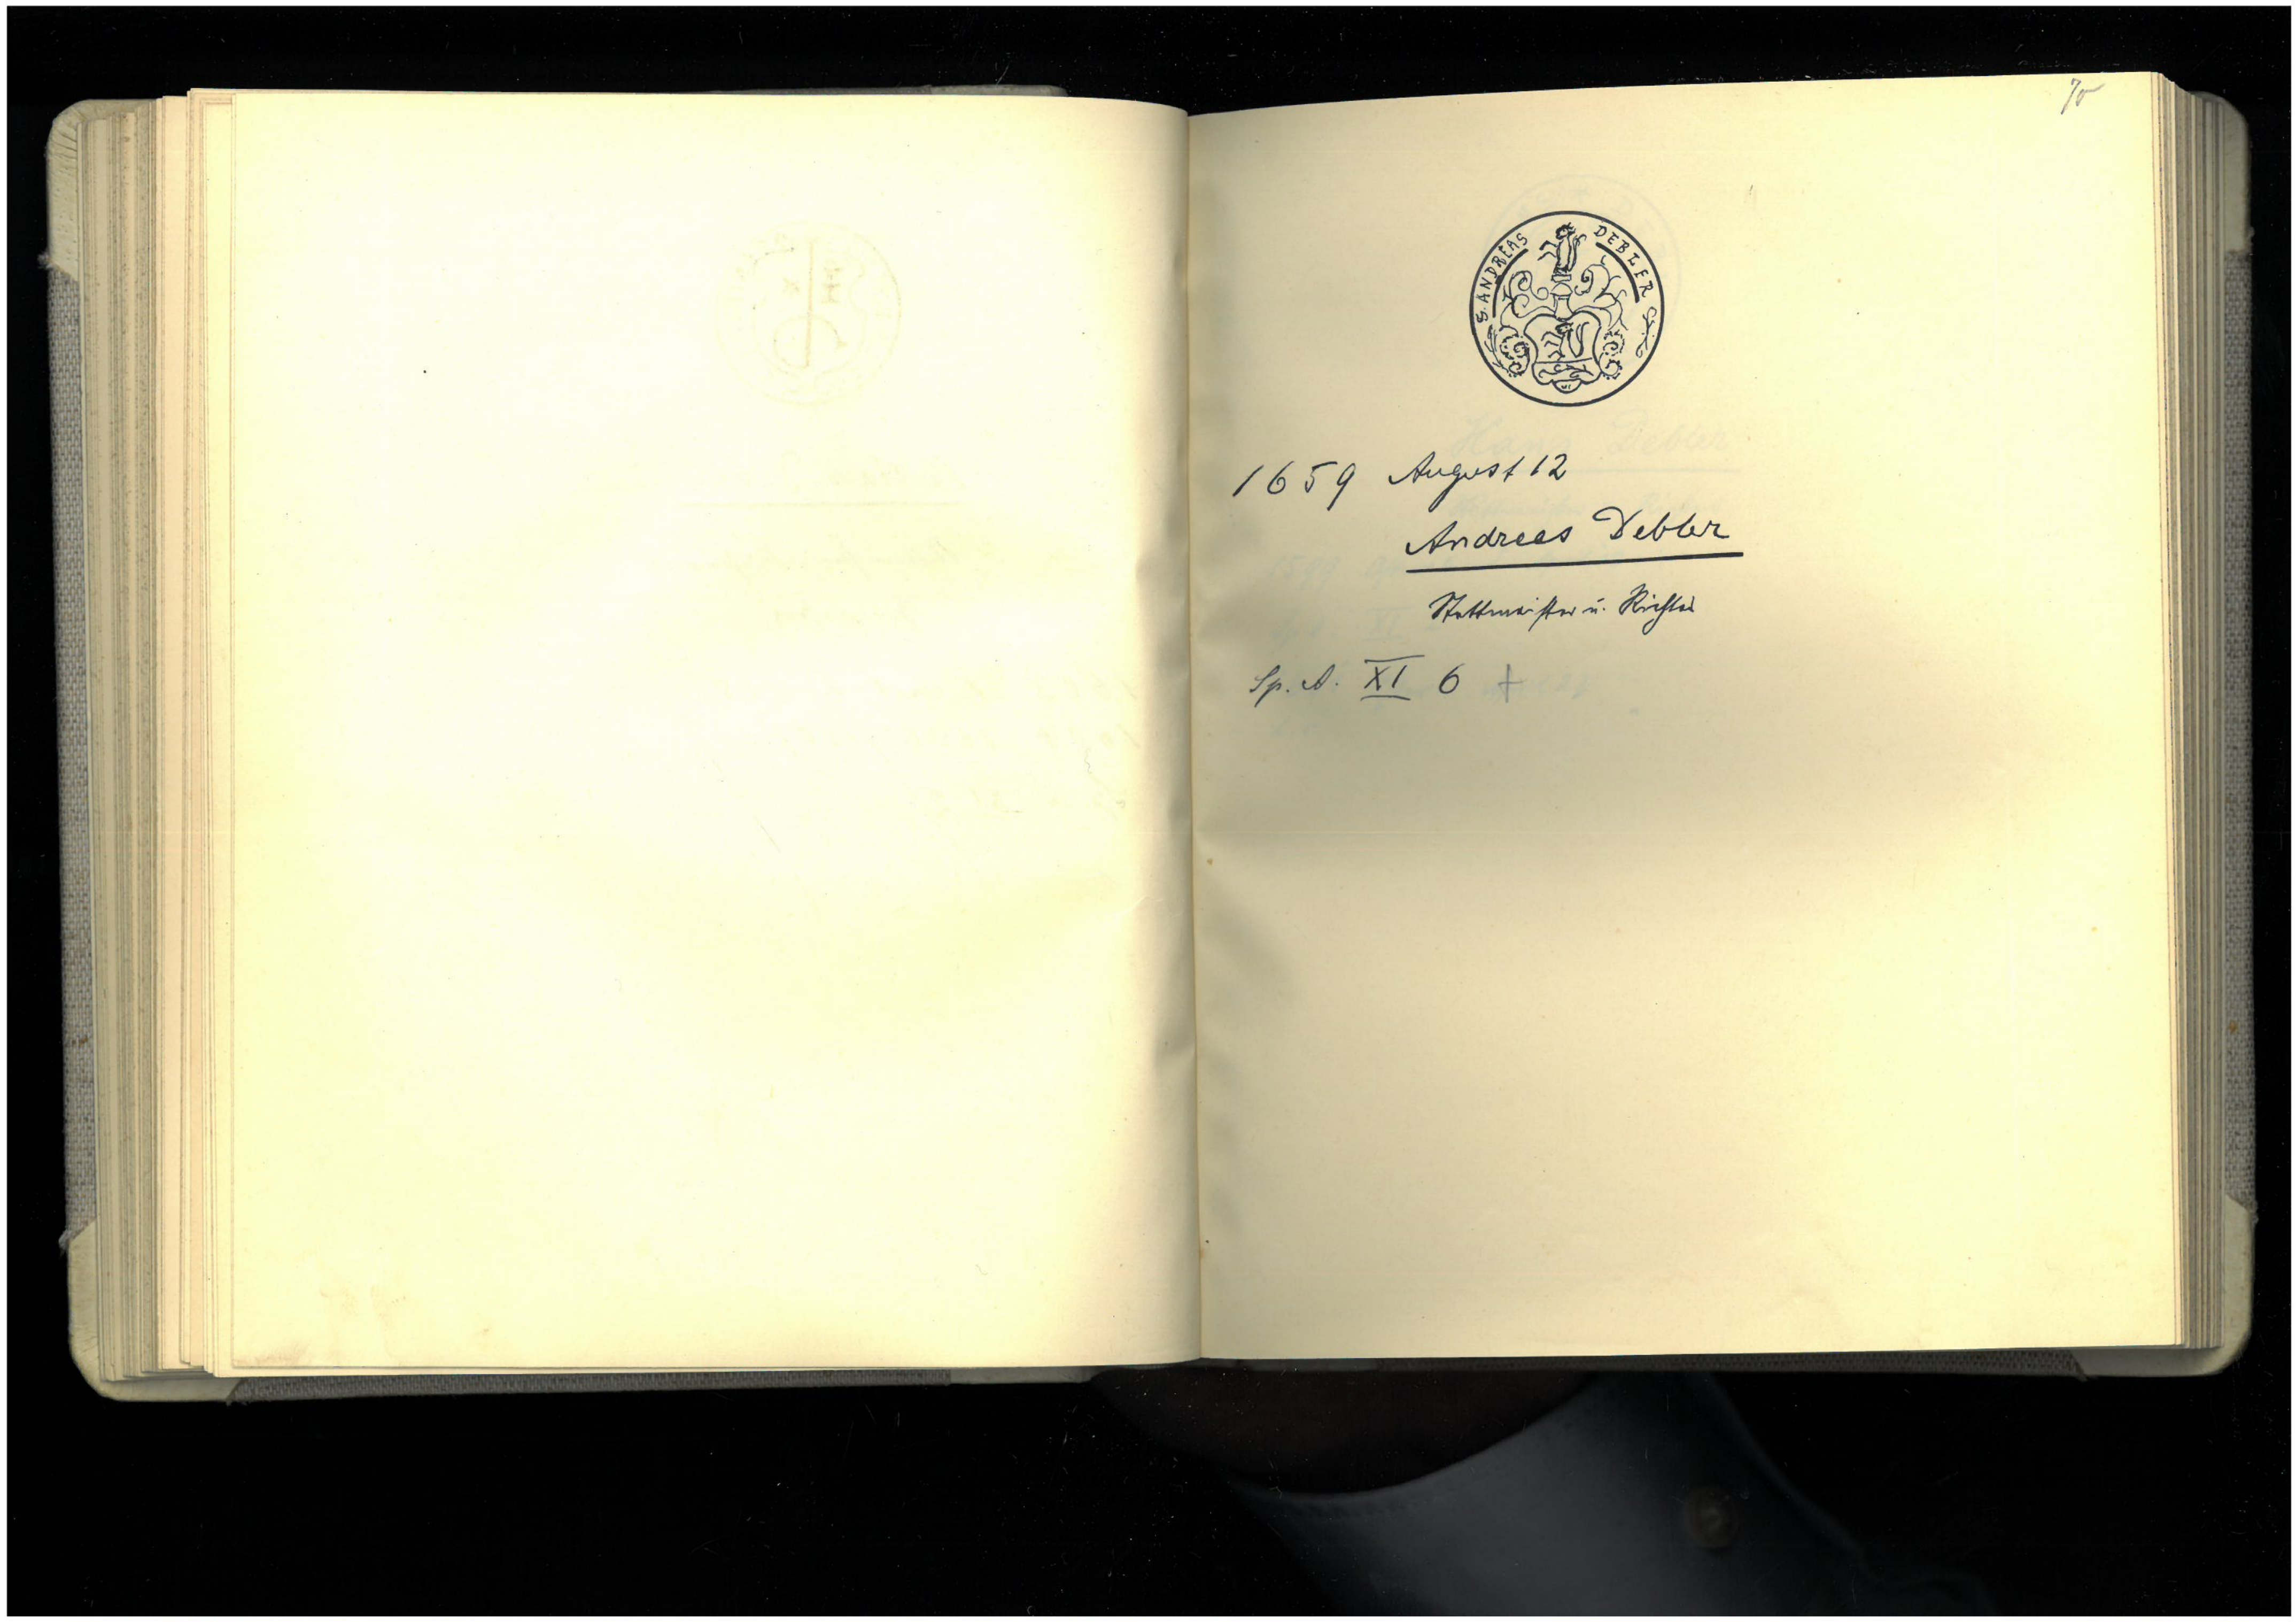 70
S. ANDREAS DEBLER
1659 August 12
Andreas Debler
Stettmeister u. Richter
Sp. A. XI 6 +
Hans Debler